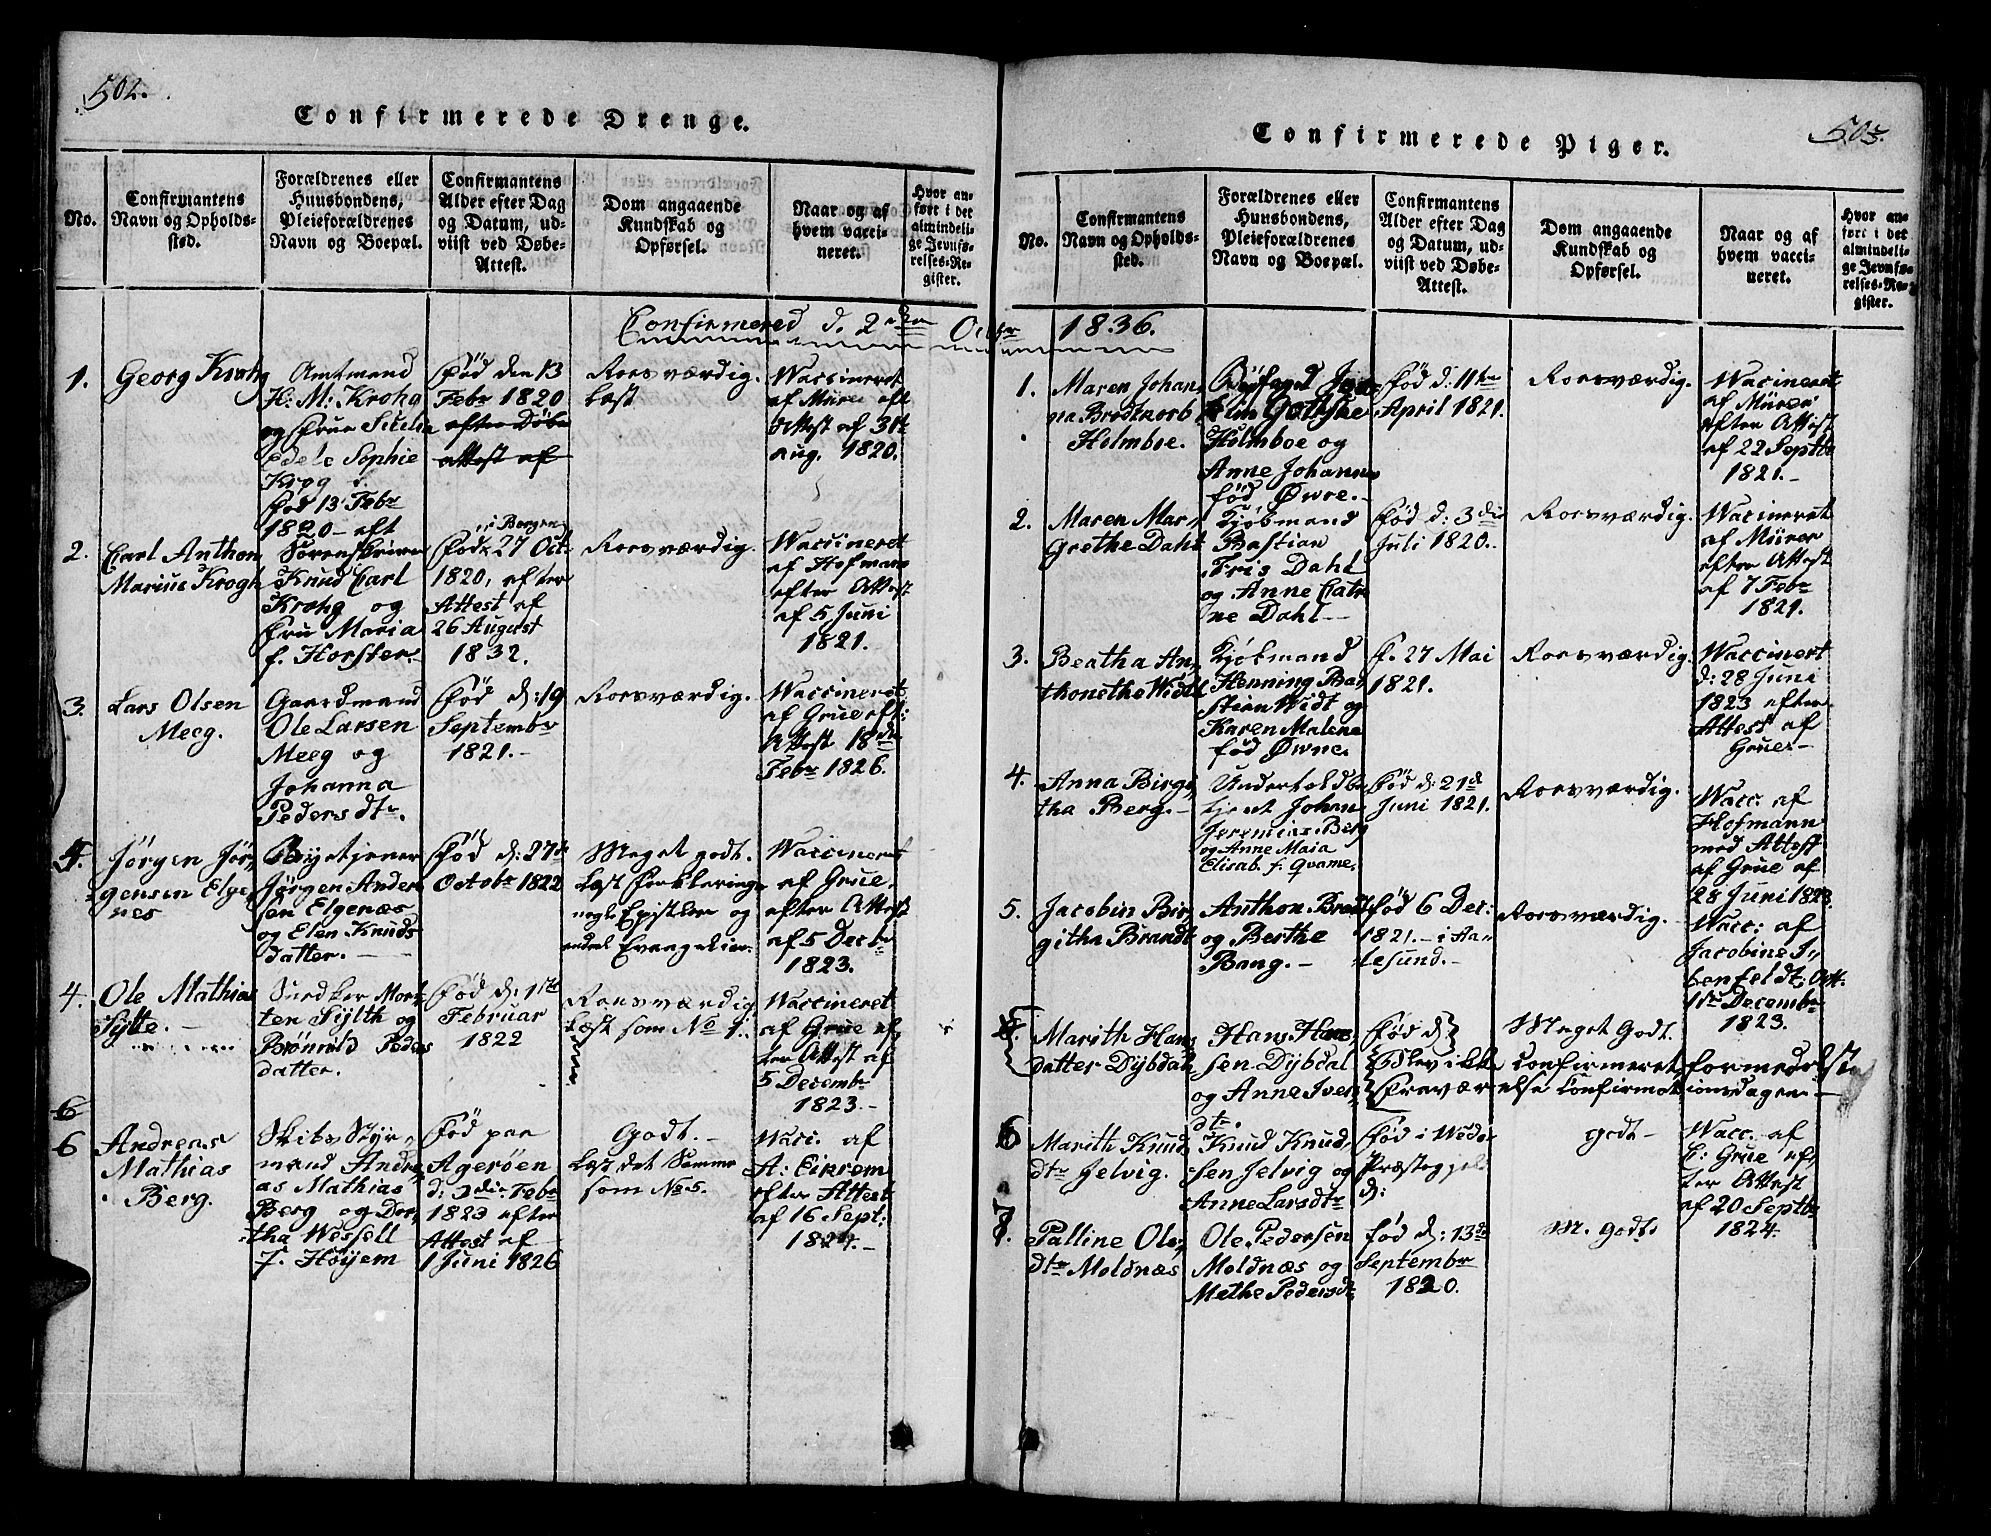 502.
Confirmerede Drenge.
No.
Confirmantens
Navn og Opholds-
sted.
Forældrenes eller
Huusbondens,
Pleieforældrenes
Navn og Boepæl.
Confirmantens
Alder efter Dag
og Datum, ud-
viist ved Døbe-
Attest.
Dom angaaende
Kundskab og
Opførsel.
Naar og af
hvem vacci-
neret.
Hvor an-
ført i det
almindeli-
ge Jevnfø-
relses-Re-
gister.
Confirmered d. 2den Octbr 1836.
1.
Georg Krohg
Amtmand
H: M: Krohg
og Frue Sicelia
Edele Sophie
Krog
fød 13 Febr
1820 - eft
Fød den 13
Febr 1820
efter Døbe
attest af
Roesværdig.
Læst
Waccineret
af Mürer eft
Attest af 31te
aug. 1820.
2.
Carl Anthon
Marius Krogh
Sørenskriver
Knud Carl
Krohg og
Fru Maria
f. Horster.
i Bergen
Fød 27 Oct.
1820, efter
Attest af
26 August
1832.
Roesværdig.
Waccineret
af Hofmann
efter Attest
af 5 Juni
1821.
3.
Lars Olsen
Meeg.
Gaardmand
Ole Larsen
Meeg og
Johanna
Pedersdtr.
Fød d: 19
Septembr
1821.-
Roesværdig.
Waccineret
af Grue eft:
Attest 18de
Febr 1826.
5.
Jørgen Jør-
gensen Elge
nes
Byetjener
Jørgen Ander
sen Elgenæs
og Elen Knuds
datter. -
Fød d: 27de
Octobr 1822
Meget godt.
Læst Forklaringe
nogle Epistler og
endeel Evangelier.
Waccineret
af Grue.
efter Attest
af 5 Decbr
1823.
4.
Ole Mathias
Sylte. -
Snedker Mort-
ten Sylth og
Brønnild Peders
datter.
Fød d: 1ste
Februar
1822
Roesværdig
Læst som No 1.
Waccineret
af Grue ef-
ter Attest af
5 Decembr
1823.-
6
6
Andreas
Mathias
Berg.
Skibs Styr-
mand Andre
as Mathias
Berg og Dor-
tha Wessell
f. Høyem
Fød paa
Agerøen
d: 3die Febr
1823 efter
Attest af
1 Juni 1826
Godt. -
Læst det Samme
som No 5.
Wacc. af
A: Eikrem
efter Attest
af 16 Sept:
1824.-
503.
Confirmerede Piger.
No.
Confirmantens
Navn og Opholds-
sted.
Forældrenes eller
Huusbondens,
Pleieforældrenes
Navn og Boepæl.
Confirmantens
Alder efter Dag
og Datum, ud-
viist ved Døbe-
Attest.
Dom angaaende
Kundskab og
Opførsel.
Naar og af
hvem vacci-
neret.
Hvor an-
ført i det
almindeli-
ge Jevnfø-
relses-Re-
gister.
1.
Maren Johan
na Brodtkorb
Holmboe.
Byfoged
Holmboe og
Anne Johanne
fød Øwre.-
Fød d: 11te
April 1821.
Roesværdig.
Wacineret
af Mürer
efter Attest
af 22 Septbr
1821.-
2.
Maren Mar-
Grethe Dahl
Kjøbmand
Bastian
Fris Dahl
og Anne Catri
ne Dahl -
Fød d: 3die
Juli 1820.
Roesværdig.
Wacineret
af Mürer
efter Attest
af 7 Febr
1821.
3.
Beatha An-
thonethe Widt
Kjøbmand
Henning Ba
stian Widt og
Karen Malene
fød Øwre.
F. 27 Mai
1821.
Roesværdig.
Waccinert
d: 28 Juni
1823 efter
Attest af
Grue -
4.
Anna Birgi-
tha Berg. -
Undertoldbe
tjent Johan
Jeremias Berg
og Anne Maia
Elisab. f. Qvame.
Fød d: 21de
Juni 1821.
Roesværdig.
Wacc. af
Hofmann
med Attest
af Grue af
28 Juni 1823.
5.
Jacobin Bir-
githa Brandt
Anthon Brandt
og Berthe
Bang. -
Fød 6 Dec:
1821. - i Aa-
lesund. -
Roesværdig.
Wacc: af
Jacobine I-
benfeldt; Att.
1ste Decembr
1823.
Marith Hans
datter Dybdal
Hans Han-
sen Dybdal
og Anne Iver
dtr.
Fød d:
Blev ikke Confirmeret formedelst
Fraværelse Confirmationsdagen. -
Meget Godt.
6
Marith Knud
dtr Jelvig.
Knud Knud-
sen Jelvig og
Anne Larsdtr
Fød i Wedø
Præstegjeld
d:
godt -
Wacc. af
C: Grue ef-
ter Attest
af 20 Septbr
1824.
7.
Palline Ols-
dtr Moldnæs
Ole Pedersen
Moldnæs og
Methe Pedersdt
Fød d: 13de
Septembr
1820.
M. godt.